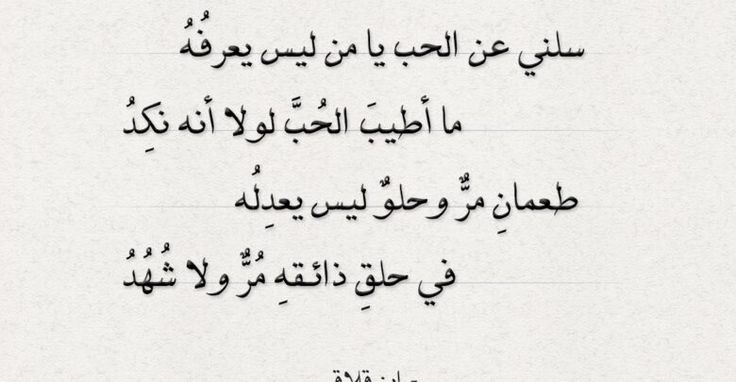 سلني عن الحب يا من ليس يعرفُهُ
ما أطيبَ الحُبَّ لولا أنه نكِدُ
طعمانِ مرٌّ وحلوٌ ليس يعدِلُه
في حلقِ ذائقهِ مُرٌّ ولا شُهُدُ